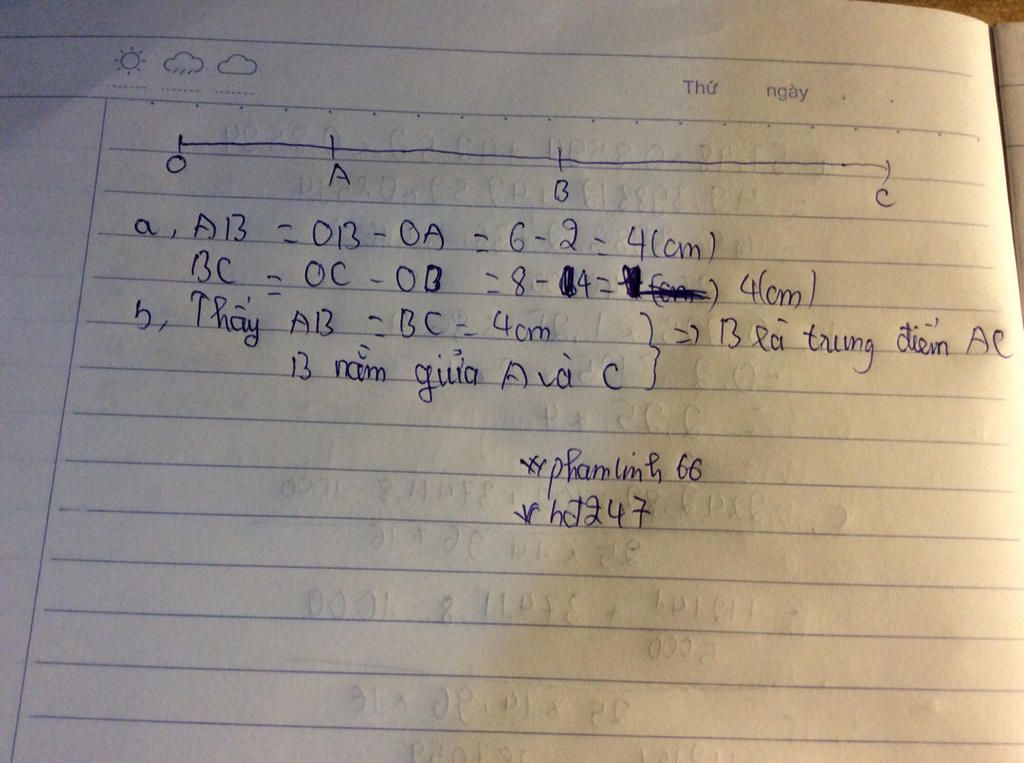 Thứ ngày
O A B C
a, AB = OB - OA = 6 - 2 = 4(cm)
BC = OC - OB = 8 - 4 = 4(cm)
b, Thấy AB = BC = 4cm } => B là trung điểm AC
B nằm giữa A và C
* phamlinh 66
* hd247